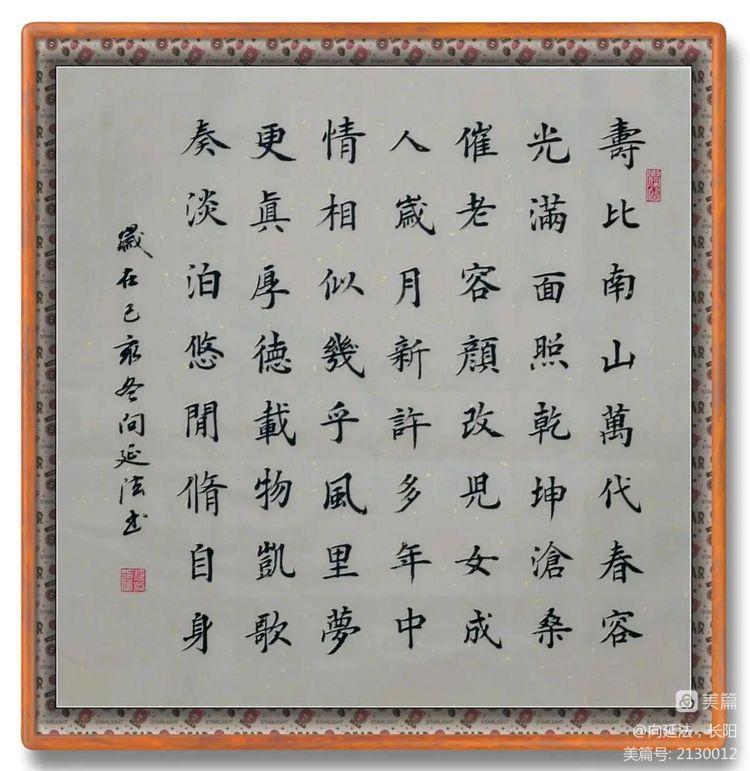 壽比南山萬代春容
光滿面照乾坤滄桑
催老容顏改児女成
人歲月新許多年中
情相似幾乎風里夢
更真厚德載物凱歌
奏淡泊悠閒脩自身
歲在己亥冬向延法书
美篇
@向延法，长阳
美篇号: 2130012
STARLIGHT